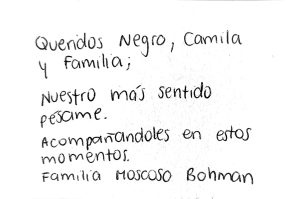 Queridos Negro, Camila
y familia;
Nuestro más sentido
pésame.
Acompañandoles en estos
momentos.
Familia Moscoso Bohman